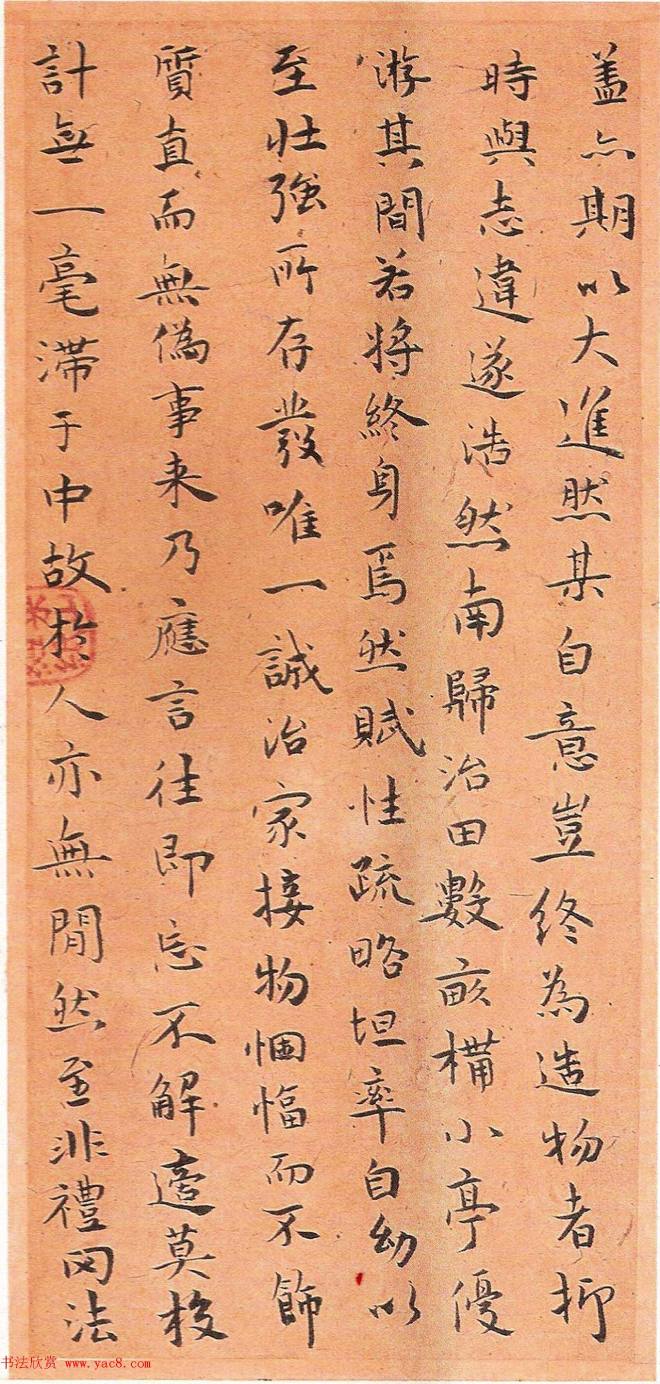 盖亦期以大進然某自意豈終為造物者抑
時與志違遂浩然南歸治田數畝構小亭優
游其間若將終身焉然賦性疏略坦率自幼以
至壯強所存發唯一誠治家接物悃愊而不飾
質直而無偽事来乃應言往即忘不解適莫校
計無一毫滯于中故於人亦無間然至非禮罔法
书法欣赏 www.yac8.com